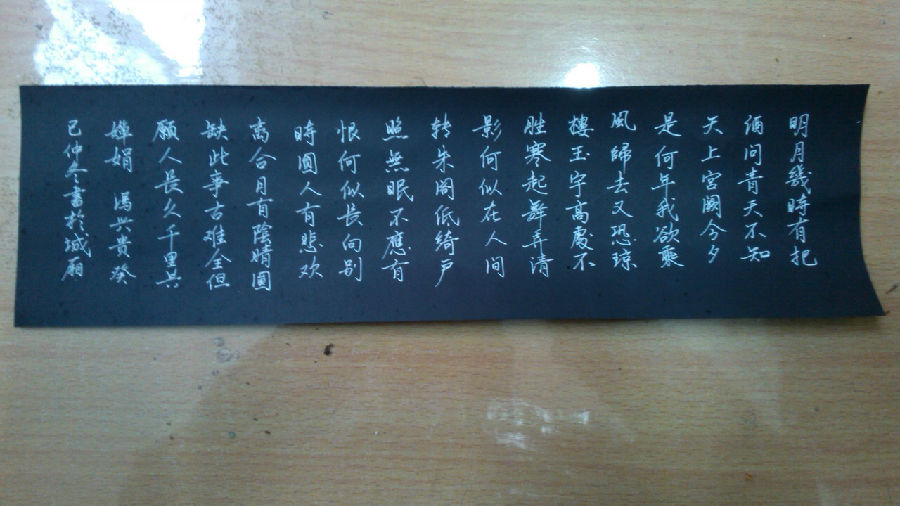 明月幾時有把
酒问青天不知
天上宮阙今夕
是何年我欲乘
风歸去又恐琼
楼玉宇高處不
胜寒起舞弄清
影何似在人间
转朱阁低绮户
照無眠不應有
恨何似長向别
時圆人有悲欢
离合月有陰晴圆
缺此事古难全但
願人長久千里共
婵娟 冯兴贵癸
巳仲冬書於城厢